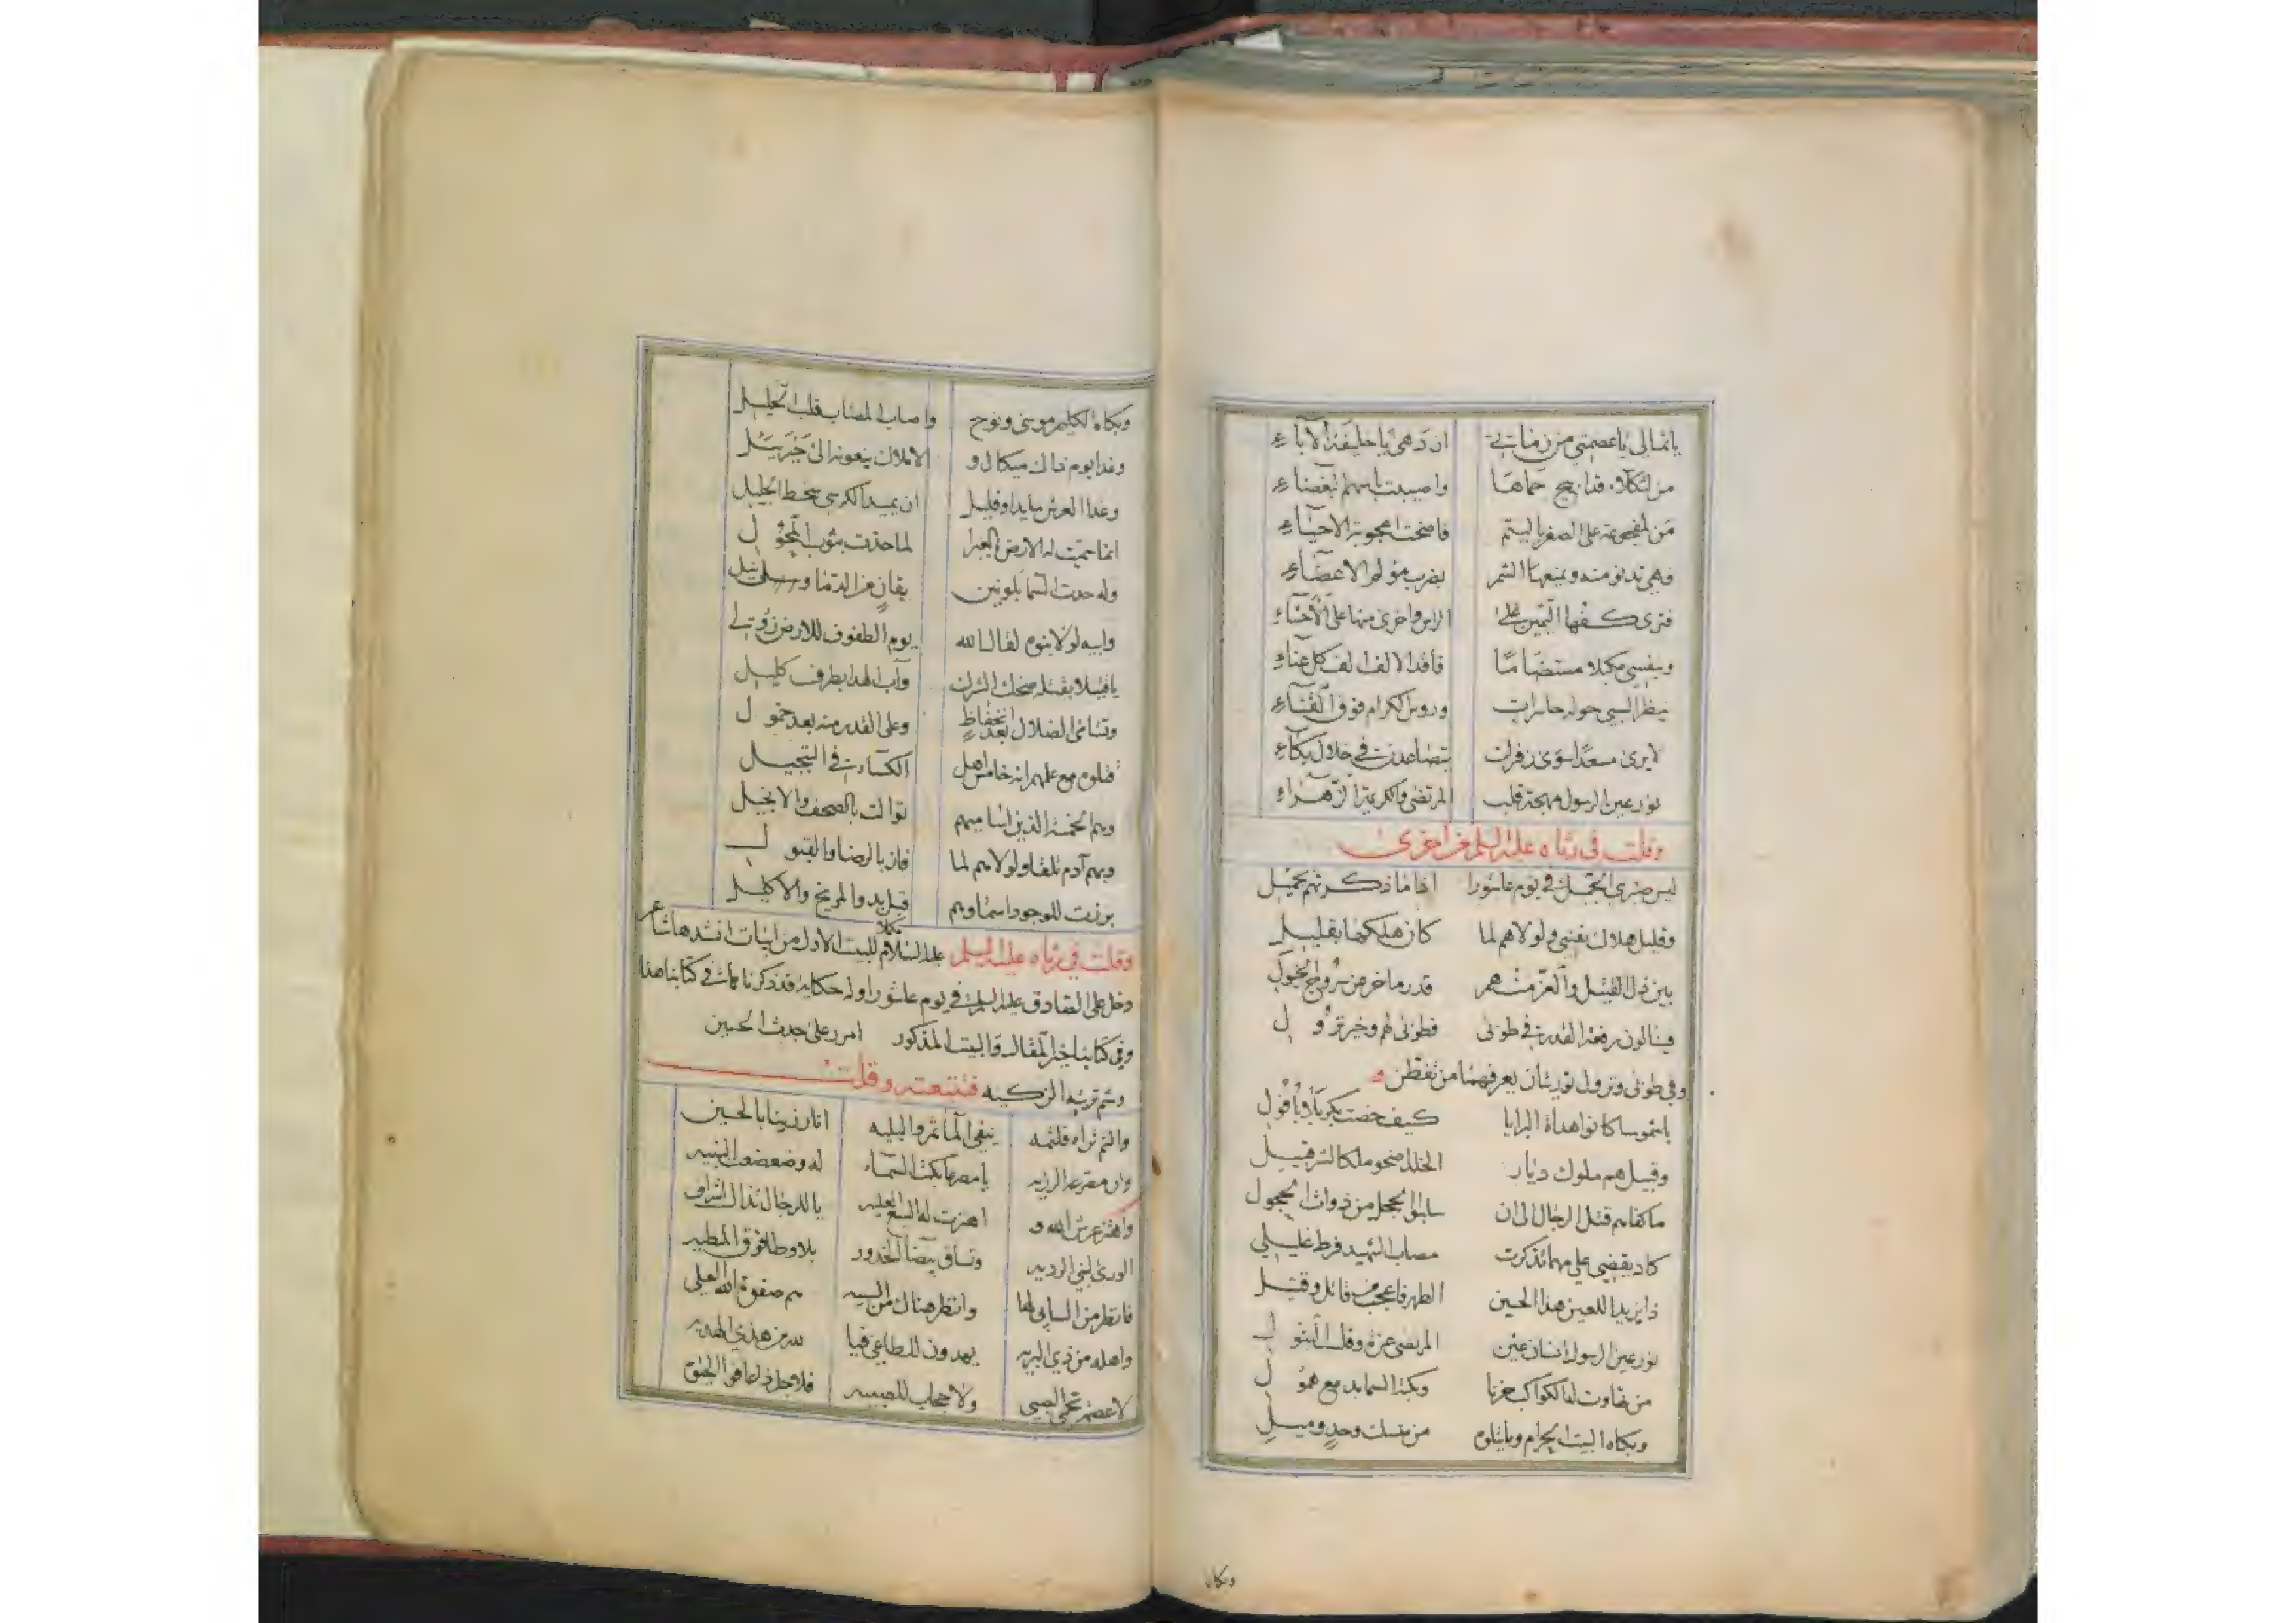 يا ثمالي يا عصمتي من زماني ان دهى يا خليفة الآباء
من لثكلاء قد ابيح حماها واصيبت باسهم البغضاء
من لمفجوعة على الصغر باليتم فاضحت اعجوبة الاحياء
فهي تدنو منه ويمنعها الشمر بضرب مؤلم الاعضاء
فترى كفها اليمين على الراس واخرى منها على الاحشاء
وبنفسي مكبلا مستضاما فاقد الالف الف كل عناء
ينظر السبي حوله حاسرات وروس الكرام فوق القناء
لا يرى مسعدا سوى زفرات تصاعدت في خلال بكاء
نور عين الرسول مهجة قلب المرتضى والكريمة الزهراء
وقلت في رثاه عليه السلم مرة اخرى
ليس صبري الجميل في يوم عاشورا اذا ما ذكرتهم بجميل
وقليل هلاك نفسي ولولاهم لما كان هلكها بقليل
بين ذل القتيل والعز منهم قدر ما خر من سروج الخيول
فينالون رفعة القدر في طوبى فطوبى لهم وخير نزول
وفي طوبى ونزول توريتان يعرفهما من تفطن
يا شموسا كانوا هداة البرايا كيف خضت بكربلا بأفول
وقبيل هم ملوك ديار الخلد اضحوا ملكا لشر قبيل
ما كفاهم قتل الرجال الى ان سلبوا الحجل من ذوات الحجول
كاد يقضي علي مهما تذكرت مصاب الشهيد فرط غليلي
ذا يزيد اللعين هذا الحسين الطهر فاعجب من قاتل وقتيل
نور عين الرسول انسان عين المرتضى عزه وقلب البتول
من تهاوت له الكواكب حزنا وبكته السما بدمع همول
وبكاه البيت الحرام وما يتلوه من منسك وحد وميل
وبكا
وبكاه الكليم موسى ونوح واصاب المصاب قلب الخليل
وغدا يوم ذاك ميكال و الاملاك ينعونه الى جبرئيل
وغدا العرش مايدا وقليل ان يميد الكرسي سخط الجليل
انما سميت له الارض الغبرا لما حذت بثوب المحول
وله حدت السما بلونين بقان من الدما وسليل
وابيه لولا بنوه لقال الله يوم الطفوف للارض زولي
يا قتيلا بقتله ضحك الشرك وآب الهدا بطرف كليل
وتسامى الضلال بعد انخفاظ وعلى القدر منه بعد خمول
ظلوه مع علمهم انه خامس اهل الكساء في التبجيل
وهم الخمسة الذين اساميهم توالت بالصحف والانجيل
وبهم آدم تلقا ولولاهم لما فاز بالرضا والقبول
برزت للوجود اسماوهم قبل بدو المريخ والاكليل
وقلت في رثاه عليه السلم مكملا للبيت الاول من ابيات انشدها شاعر
دخل على الصادق عليه السلم في يوم عاشورا وله حكاية قد ذكرناها في كتابنا هذا
وفي كتابنا خير المقال والبيت المذكور امرر على جدث الحسين
وشم تربته الزكيه فتتبعته وقلت
والثم ثراه فلثمه ينفي المآثم والبليه ان ارزينا بالحسين
وان مصرعه الرزيه يا مصرعا بكت السماء له وضعضعت البنيه
واهتز عرش الله و اهتزت له السبع العليه يا للرجال نذال اشراف
الورى لبني الرديه وتساق بيضات الخدور بلا وطا فوق المطيه
فانظر من السابي لها وانظر هناك من السبيه هم صفوة الله العلي
واهله من ذي البريه يهدون للطاغي فيا لله من هذي الهديه
لا عصم تحمي السبي ولا حجاب للصبيه فلاجل ذا عاف البخوق